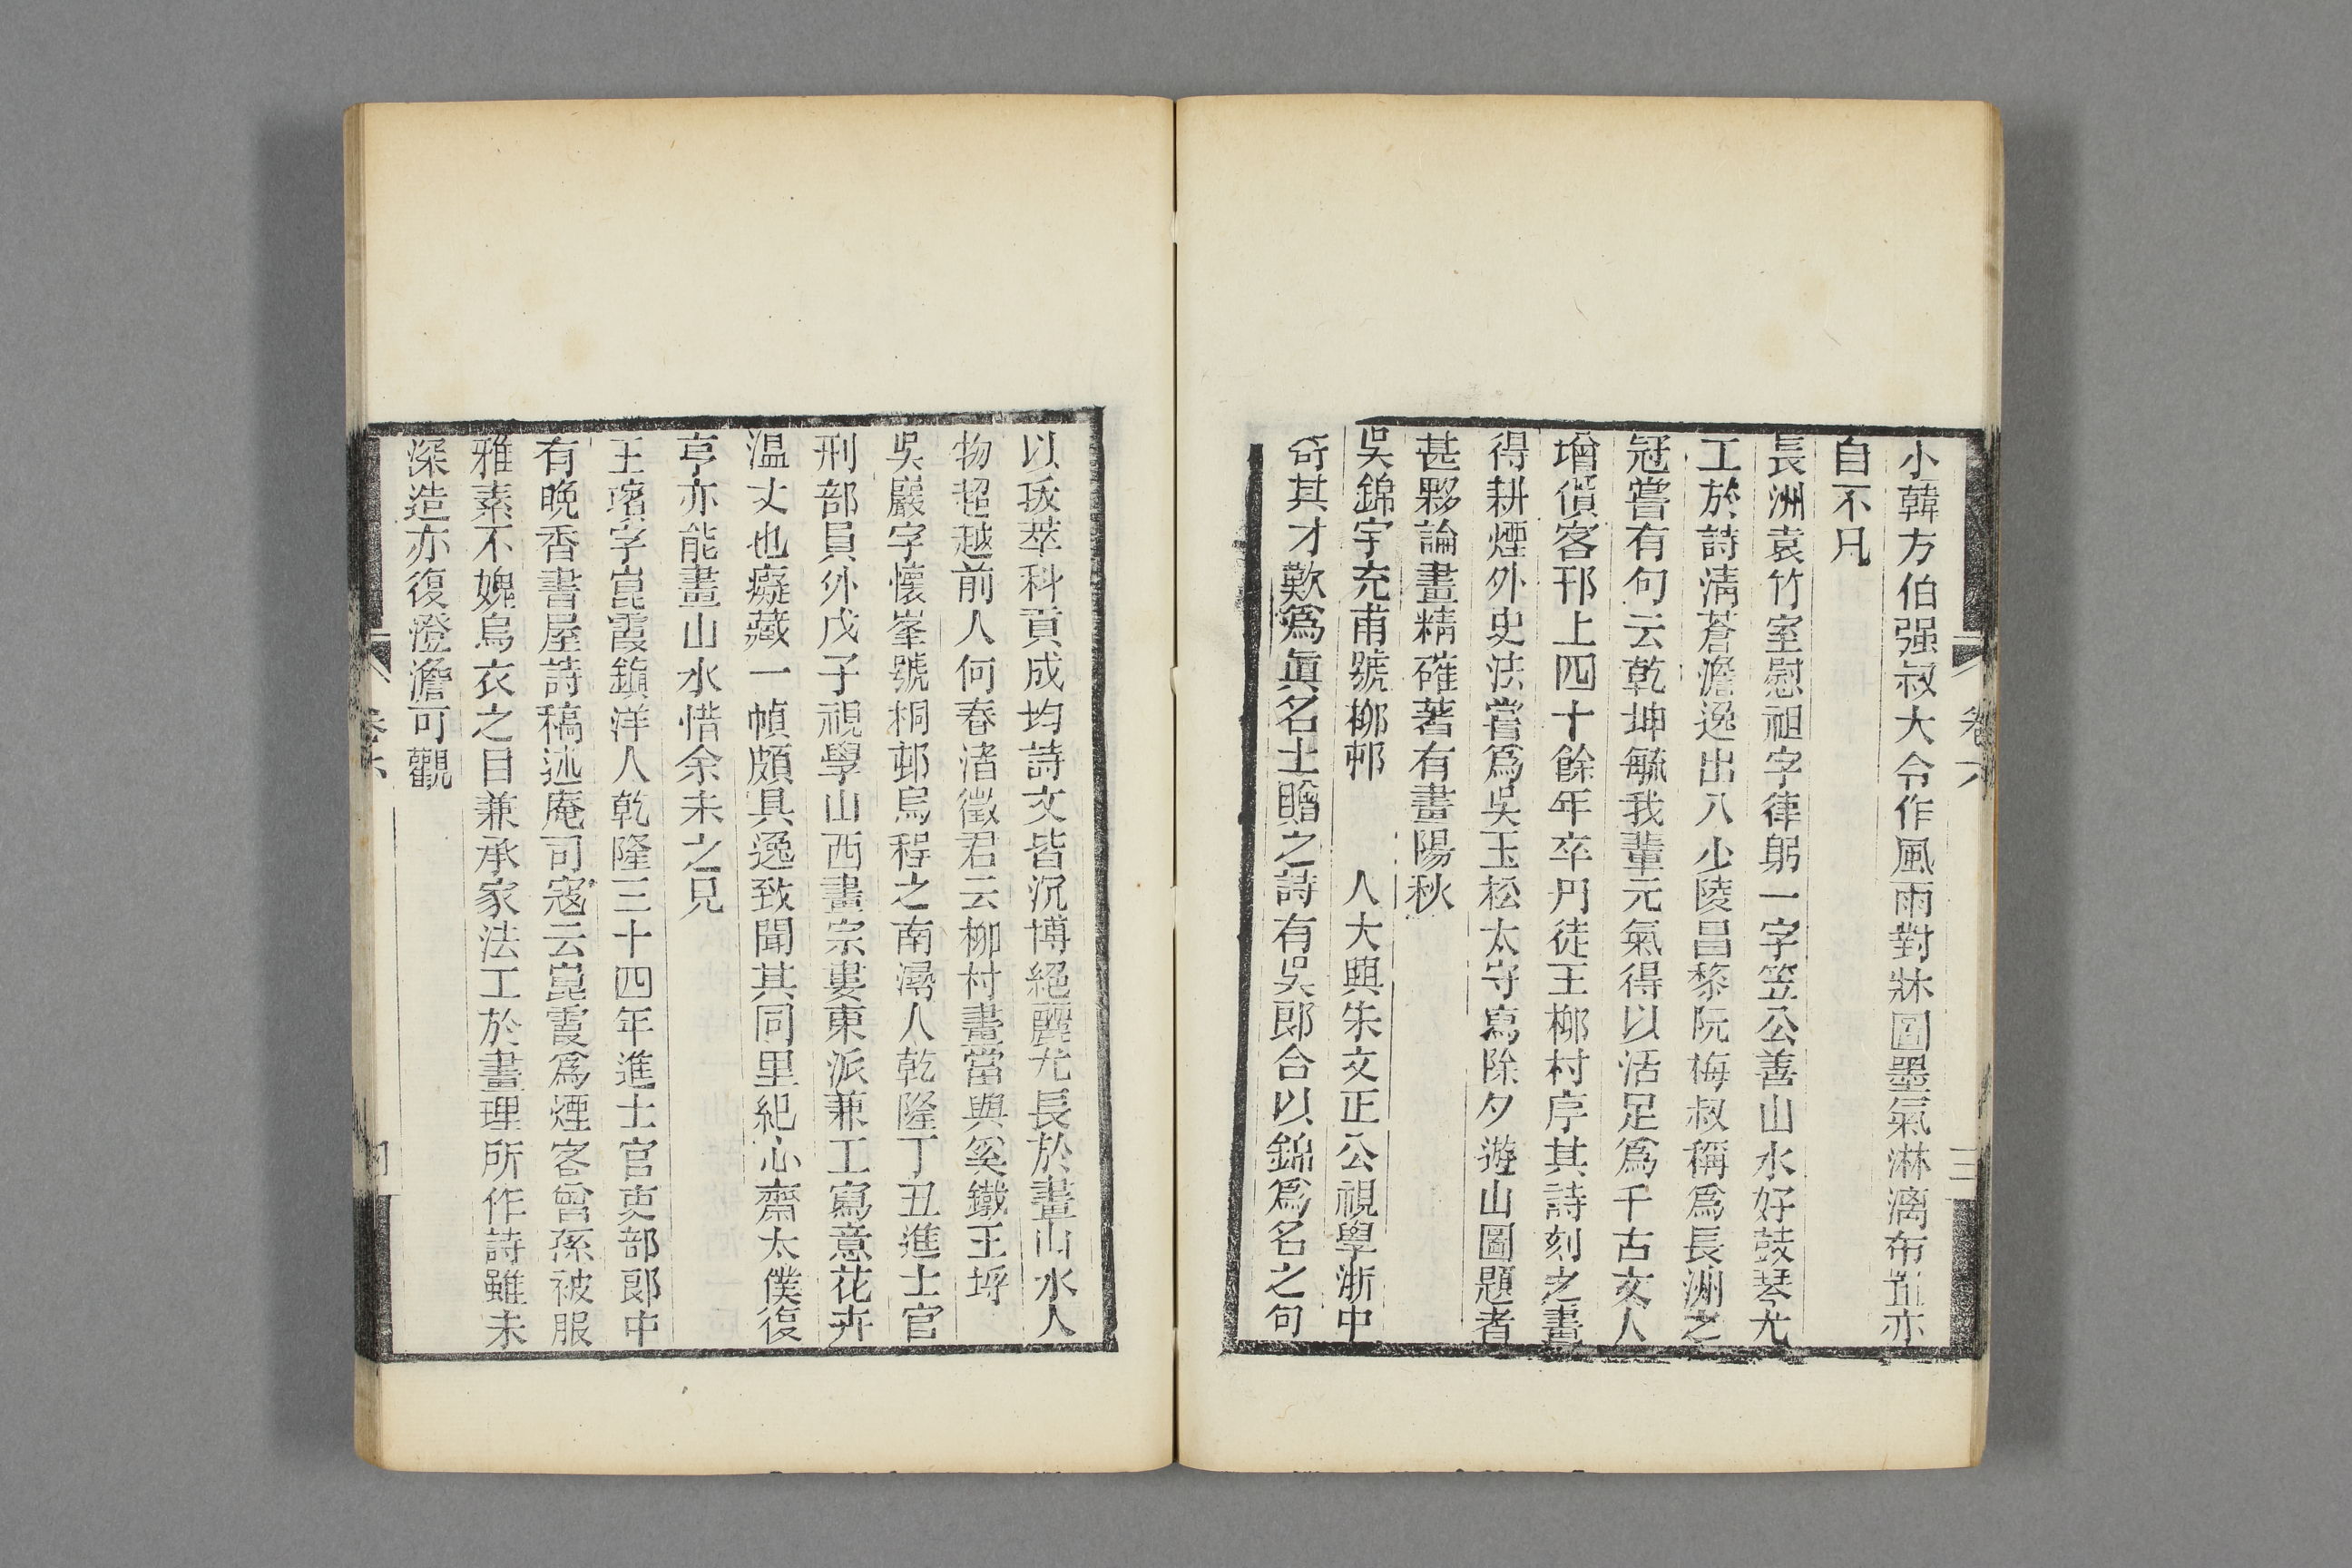 小韓方伯强叔大令作風雨對牀圖墨氣淋漓布置亦
自不凡
長洲袁竹室慰祖字律躬一字笠公善山水好鼓琴尤
工於詩淸蒼澹逸出入少陵昌黎阮梅叔稱爲長洲之
冠嘗有句云乾坤毓我輩元氣得以活足爲千古文人
增價客邗上四十餘年卒丹徒王柳村序其詩刻之畫
得耕煙外史法嘗爲吳玉松太守寫除夕遊山圖題者
甚夥論畫精確著有畫陽秋
吳錦字充甫號柳邨　　人大興朱文正公視學浙中
奇其才歎爲眞名士贈之詩有吳郞合以錦爲名之句
卷六
三
以拔萃科貢成均詩文皆沉博絕麗尤長於畫山水人
物超越前人何春渚徵君云柳村畫當與奚鐵王埒
吳巖字懷峯號桐邨烏程之南潯人乾隆丁丑進士官
刑部員外戊子視學山西畫宗婁東派兼工寫意花卉
温丈也癡藏一幀頗具逸致聞其同里紀心齋太僕復
亨亦能畫山水惜余未之見
王濱字崑霞鎭洋人乾隆三十四年進士官吏部郞中
有晚香書屋詩稿述庵司寇云崑霞爲煙客曾孫被服
雅素不媿烏衣之目兼承家法工於畫理所作詩雖未
深造亦復澄澹可觀
卷六
四